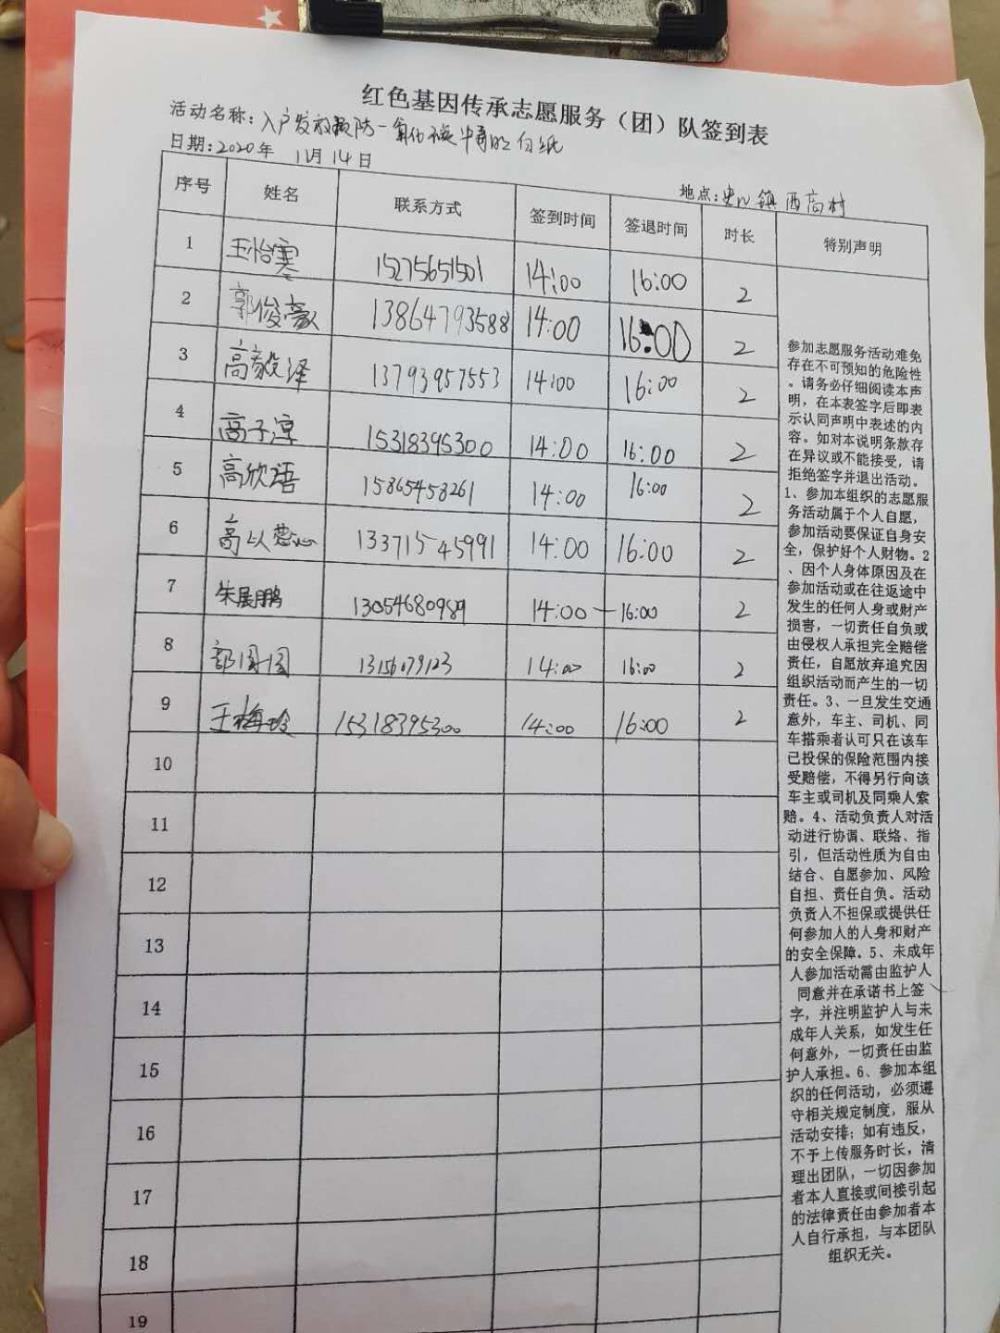 红色基因传承志愿服务（团）队签到表
活动名称：入户发放预防一氧化碳中毒明白纸
日期：2020年 11月14日
地点： 镇西高村
序号 姓名 联系方式 签到时间 签退时间 时长 特别声明
1 王怡寒 15275651501 14:00 16:00 2
2 郭俊豪 13864793588 14:00 16:00 2
3 高毅泽 13793957553 14:00 16:00 2
4 高子淳 15318395300 14:00 16:00 2
5 高欣语 15865458261 14:00 16:00 2
6 高以 13371545991 14:00 16:00 2
7 朱展鹏 13054680989 14:00-16:00 2
8 郭国国 14:00 16:00 2
9 王梅玲 15318395300 14:00 16:00 2
10
11
12
13
14
15
16
17
18
19
参加志愿服务活动难免
存在不可预知的危险性
。请务必仔细阅读本声
明，在本表签字后即表
示认同声明中表述的内
容。如对本说明条款存
在异议或不能接受，请
拒绝签字并退出活动。
1、参加本组织的志愿服
务活动属于个人自愿，
参加活动要保证自身安
全，保护好个人财物。2
、因个人身体原因及在
参加活动或在往返途中
发生的任何人身或财产
损害，一切责任自负或
由侵权人承担完全赔偿
责任，自愿放弃追究因
组织活动而产生的一切
责任。3、一旦发生交通
意外，车主、司机、同
车搭乘者认可只在该车
已投保的保险范围内接
受赔偿，不得另行向该
车主或司机及同乘人索
赔。4、活动负责人对活
动进行协调、联络、指
引，但活动性质为自由
结合、自愿参加、风险
自担、责任自负。活动
负责人不担保或提供任
何参加人的人身和财产
的安全保障。5、未成年
人参加活动需由监护人
同意并在承诺书上签
字，并注明监护人与未
成年人关系，如发生任
何意外，一切责任由监
护人承担。6、参加本组
织的任何活动，必须遵
守相关规定制度，服从
活动安排；如有违反，
不予上传服务时长，清
理出团队，一切因参加
者本人直接或间接引起
的法律责任由参加者本
人自行承担，与本团队
组织无关。